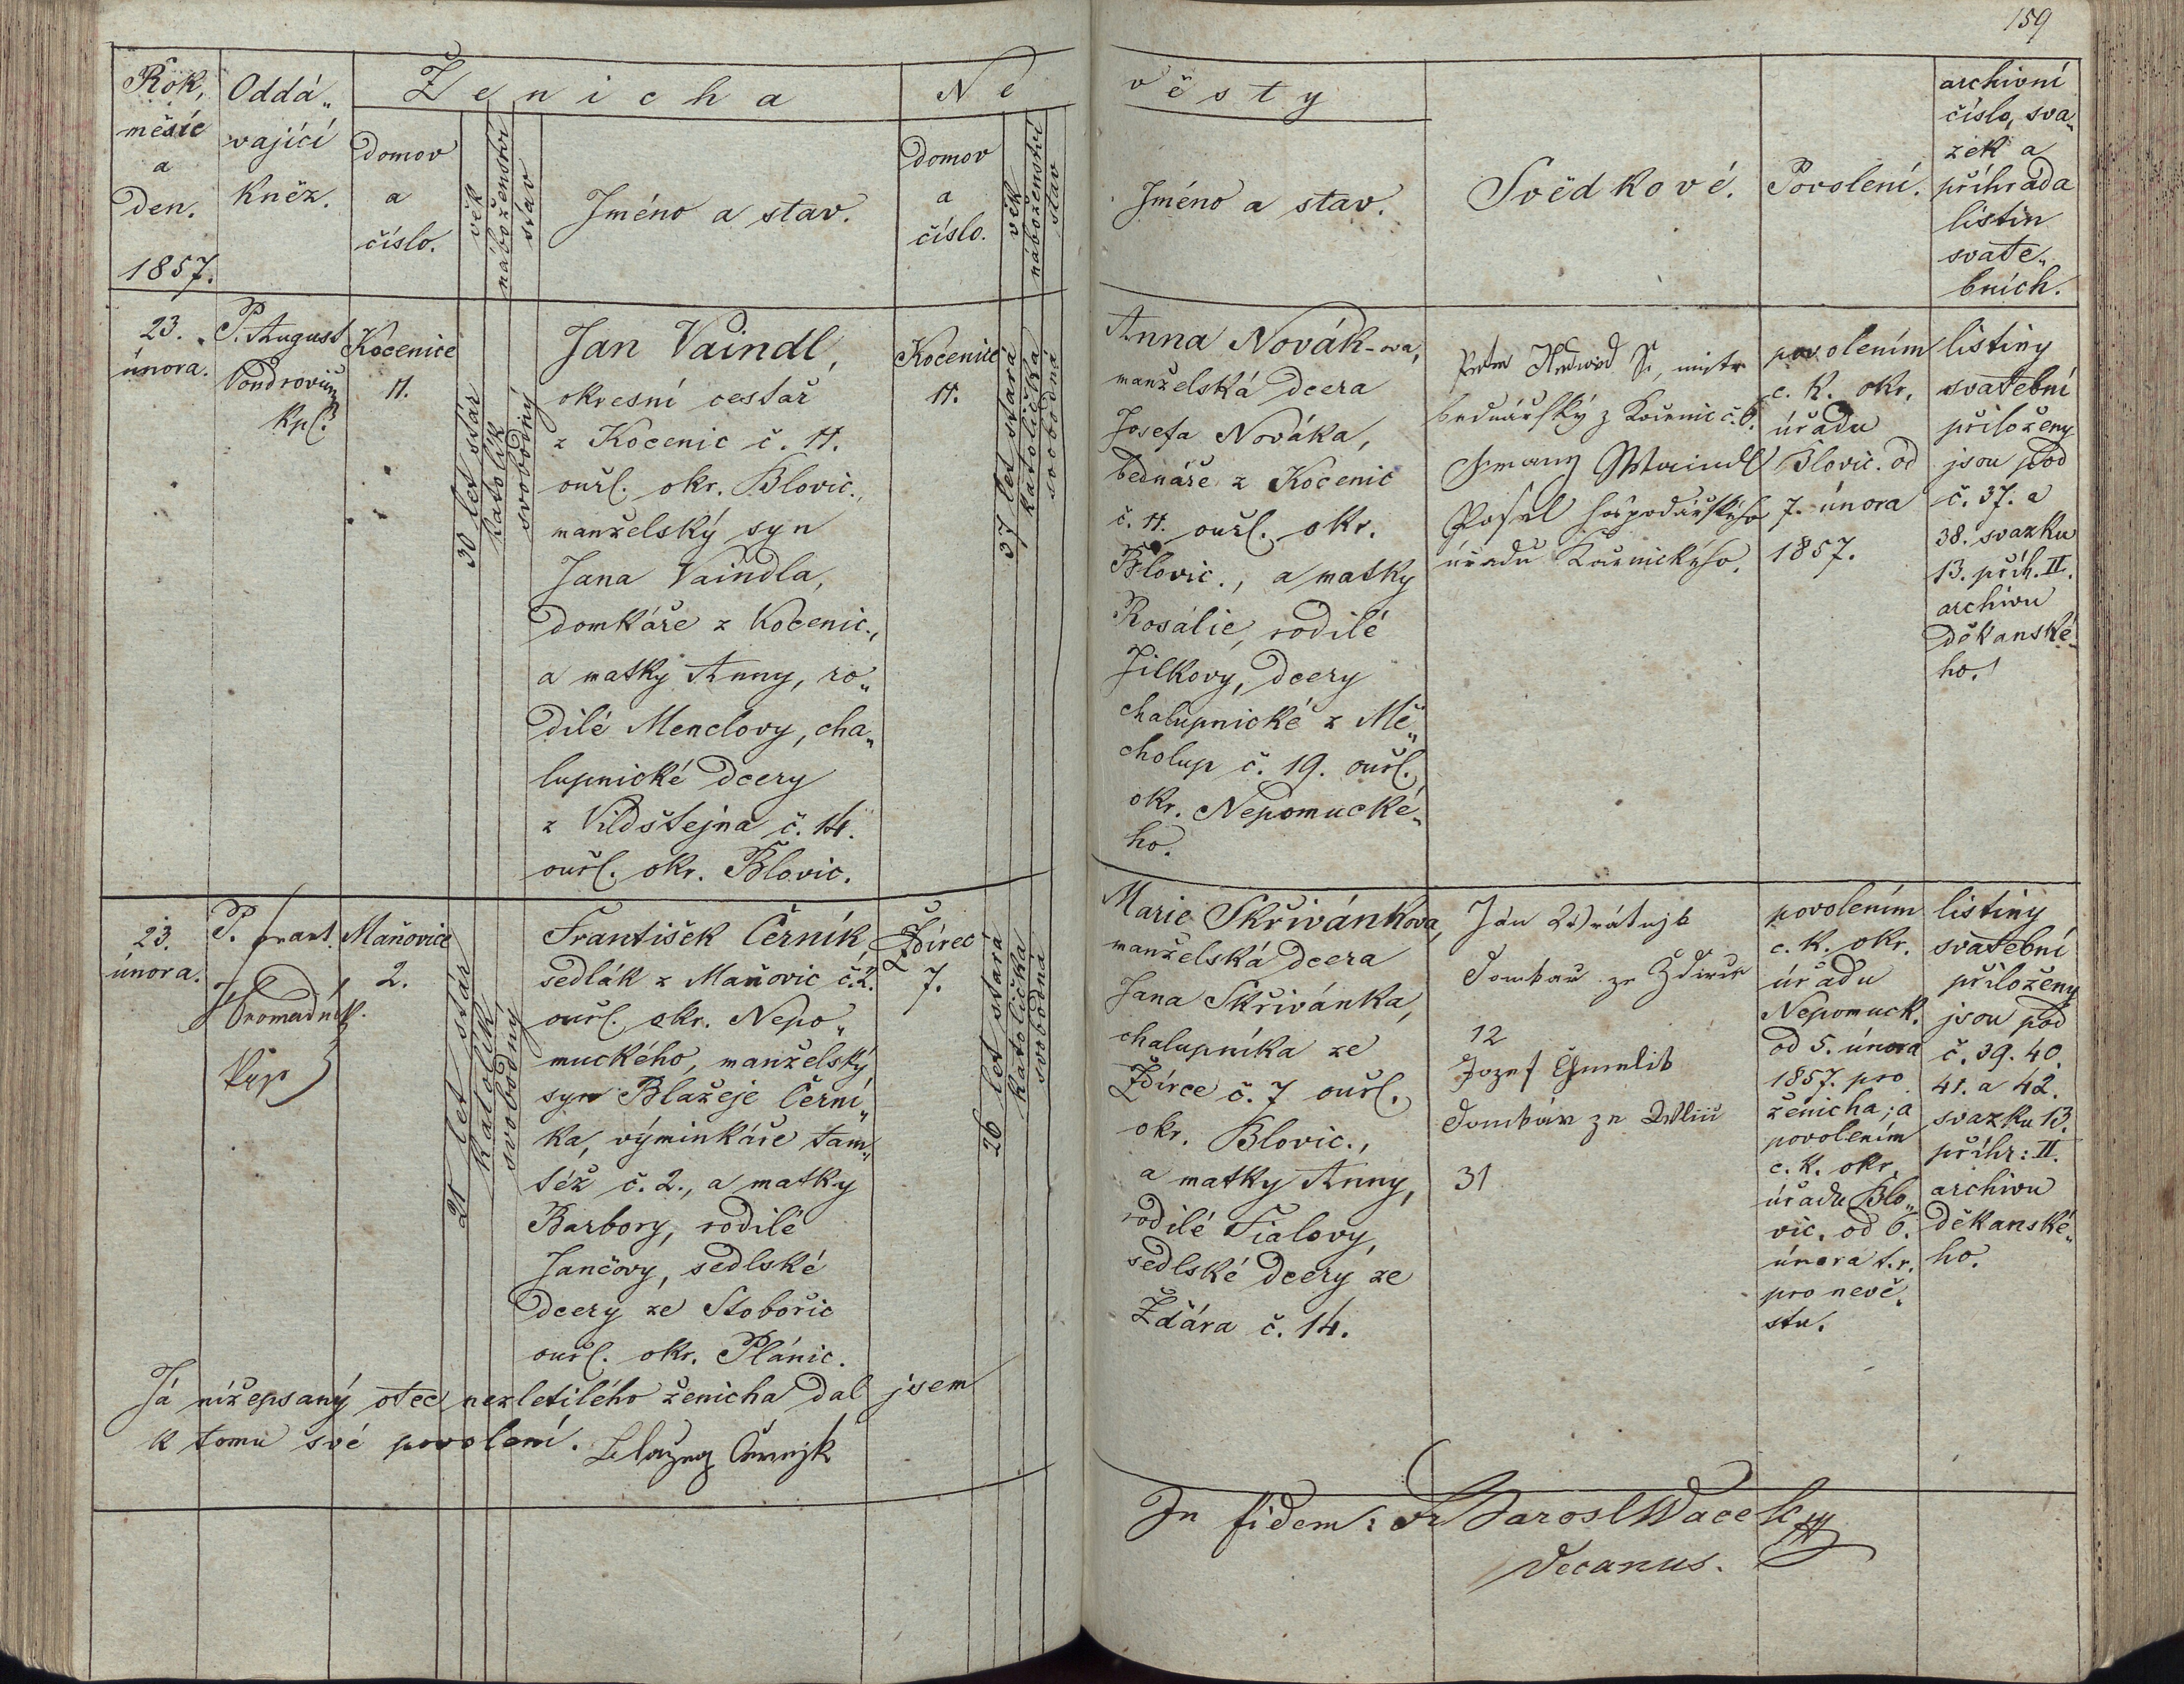 159
Rok,
měsíc
a
Den.
1857.
Oddá„
vající
kněz.
Ženicha
domov
a
číslo.
věk
náboženství
stav
Jméno a stav.
Ne
domov
a
číslo.
věk
náboženství
stav
věsty
Jméno a stav.
Svědkové.
Povolení.
archivní
číslo, sva„
zek a
příhrada
listin
svate„
bních.
23.
února.
P. August
Kpl.
Kocenice
11.
30 let stár
katolík
svobodný
Jan Vaindl,
okresní cestář
z Kocenic č. 11.
ouřl. okr. Blovic.,
manželský syn
Jana Vaindla,
domkáře z Kocenic.,
a matky Anny, ro„
dilé Menclovy, cha„
lupnické dcery
z Vildštejna č. 14.
ouřl. okr. Blovic.
Kocenice
11.
37 let stará
katolička
svobodná
Anna Novák-ova,
manželská dcera
Josefa Nováka,
bednáře z Kocenic
č. 11. ouřl. okr.
Blovic., a matky
Rosálie, rodilé
Jílkovy, dcery
chalupnické z Mě„
cholup č. 19. ouřl.
okr. Nepomucké„
ho.
bednářský z Kocenic č. 6.
Waindl
Posel hospodářského
úřadu
povolením
c. k. okr.
úřadu
Blovic. od
7. února
1857.
listiny
svatební
přiloženy
jsou pod
č. 37. a
38. svazku
13. příh. II.
archivu
děkanské„
ho.
23.
února.
P. Frant.
Hromadník
kap
Maňovice
2.
21 let stár
katolík
svobodný
František Černík
sedlák z Maňovic č. 2.
ouřl. okr. Nepo„
muckého, manželský
syn Blažeje Černí„
ka, výminkáře tam„
též č. 2., a matky
Barbory, rodilé
Jančovy, sedlské
dcery ze Stobořic
ouřl. okr. Plánic.
Ždírec
7.
26 let stará
katolička
svobodná
Marie Skřivánkova,
manželská dcera
Jana Skřivánka,
chalupníka ze
Ždírce č. 7 ouřl.
okr. Blovic.,
a matky Anny,
rodilé Fialovy,
sedlské dcery ze
Ždára č. 14.
Ján
12
Jozef
31
povolením
c. k. okr.
úřadu
Nepomuck.
od 5. února
1857. pro
ženicha; a
povolením
c. k. okr.
úřadu Blo„
vic. od 6.
února t. r.
pro nevě„
stu.
listiny
svatební
přiloženy
jsou pod
č. 39. 40.
41. a 42.
svazku 13.
příhr: II.
archivu
děkanské„
ho.
Já nížepsaný otec nezletilého ženicha dal jsem
k tomu své povolení. Blažeg Černjk
In fidem:
Decanus.